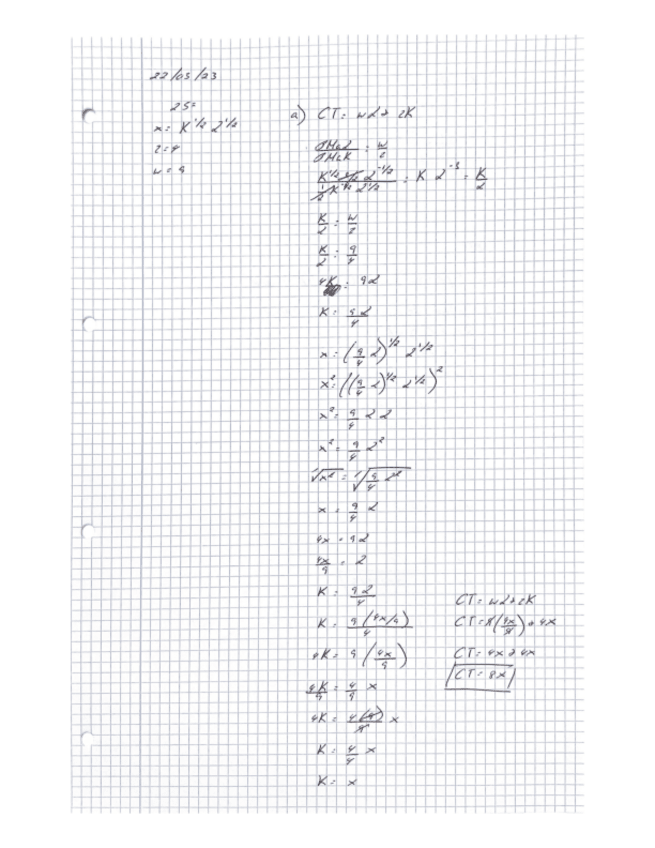 22/05/23
25=
x= K^1/2 L^1/2
r=4
w=9
a) CT= wL+ rK
PMgL/PMgK = w/r
K^1/2 1/2 L^-1/2 / 1/2 K^-1/2 L^1/2 = K L^-1 = K/L
K/L = w/r
K/L = 9/4
4K = 9L
K= 9L/4
x= (9/4 L)^1/2 L^1/2
x²= ((9/4 L)^1/2 L^1/2)^2
x²= 9/4 L L
x²= 9/4 L²
√x² = √9/4 L²
x = 9/4 L
4x = 9L
4x/9 = L
K= 9L/4
K= 9(4x/9)/4
4K= 9 (4x/9)
4K/9 = 4/9 x
4K= 4(9)/9 x
K= 4/4 x
K= x
CT= wL+rK
CT= 9(4x/9) + 4x
CT= 4x+4x
CT= 8x